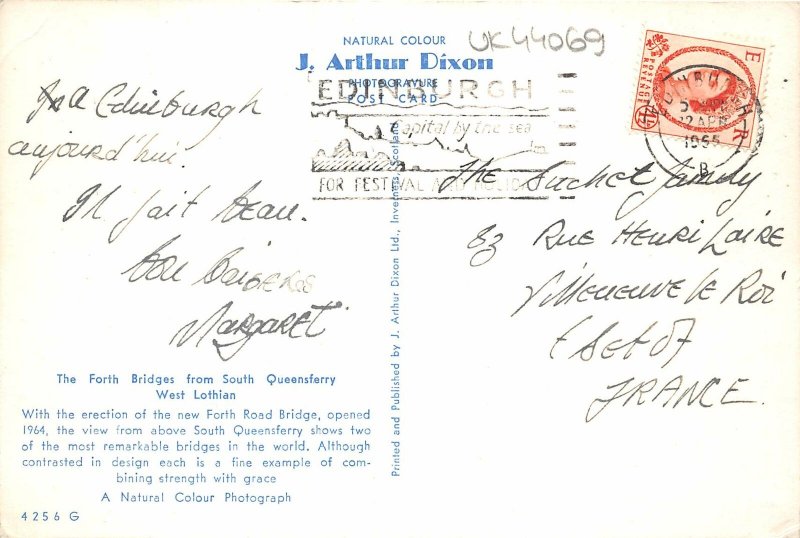 NATURAL COLOUR
J. Arthur Dixon
PHOTOGRAVURE
POST CARD
UK44069
EDINBURGH
Capital by the sea
FOR FESTIVAL AND HOLIDAY
POSTAGE
REVENUE
EDINBURGH
12 APR
1965
B
Edinburgh
aujourd'hui.
Il fait beau.
Bon Baisers
Margaret
The Suchet family
Rue Henri Laire
Villeneuve le Roi
FRANCE.
The Forth Bridges from South Queensferry
West Lothian
With the erection of the new Forth Road Bridge, opened
1964, the view from above South Queensferry shows two
of the most remarkable bridges in the world. Although
contrasted in design each is a fine example of com-
bining strength with grace
A Natural Colour Photograph
4256 G
Printed and Published by J. Arthur Dixon Ltd., Inverness, Scotland